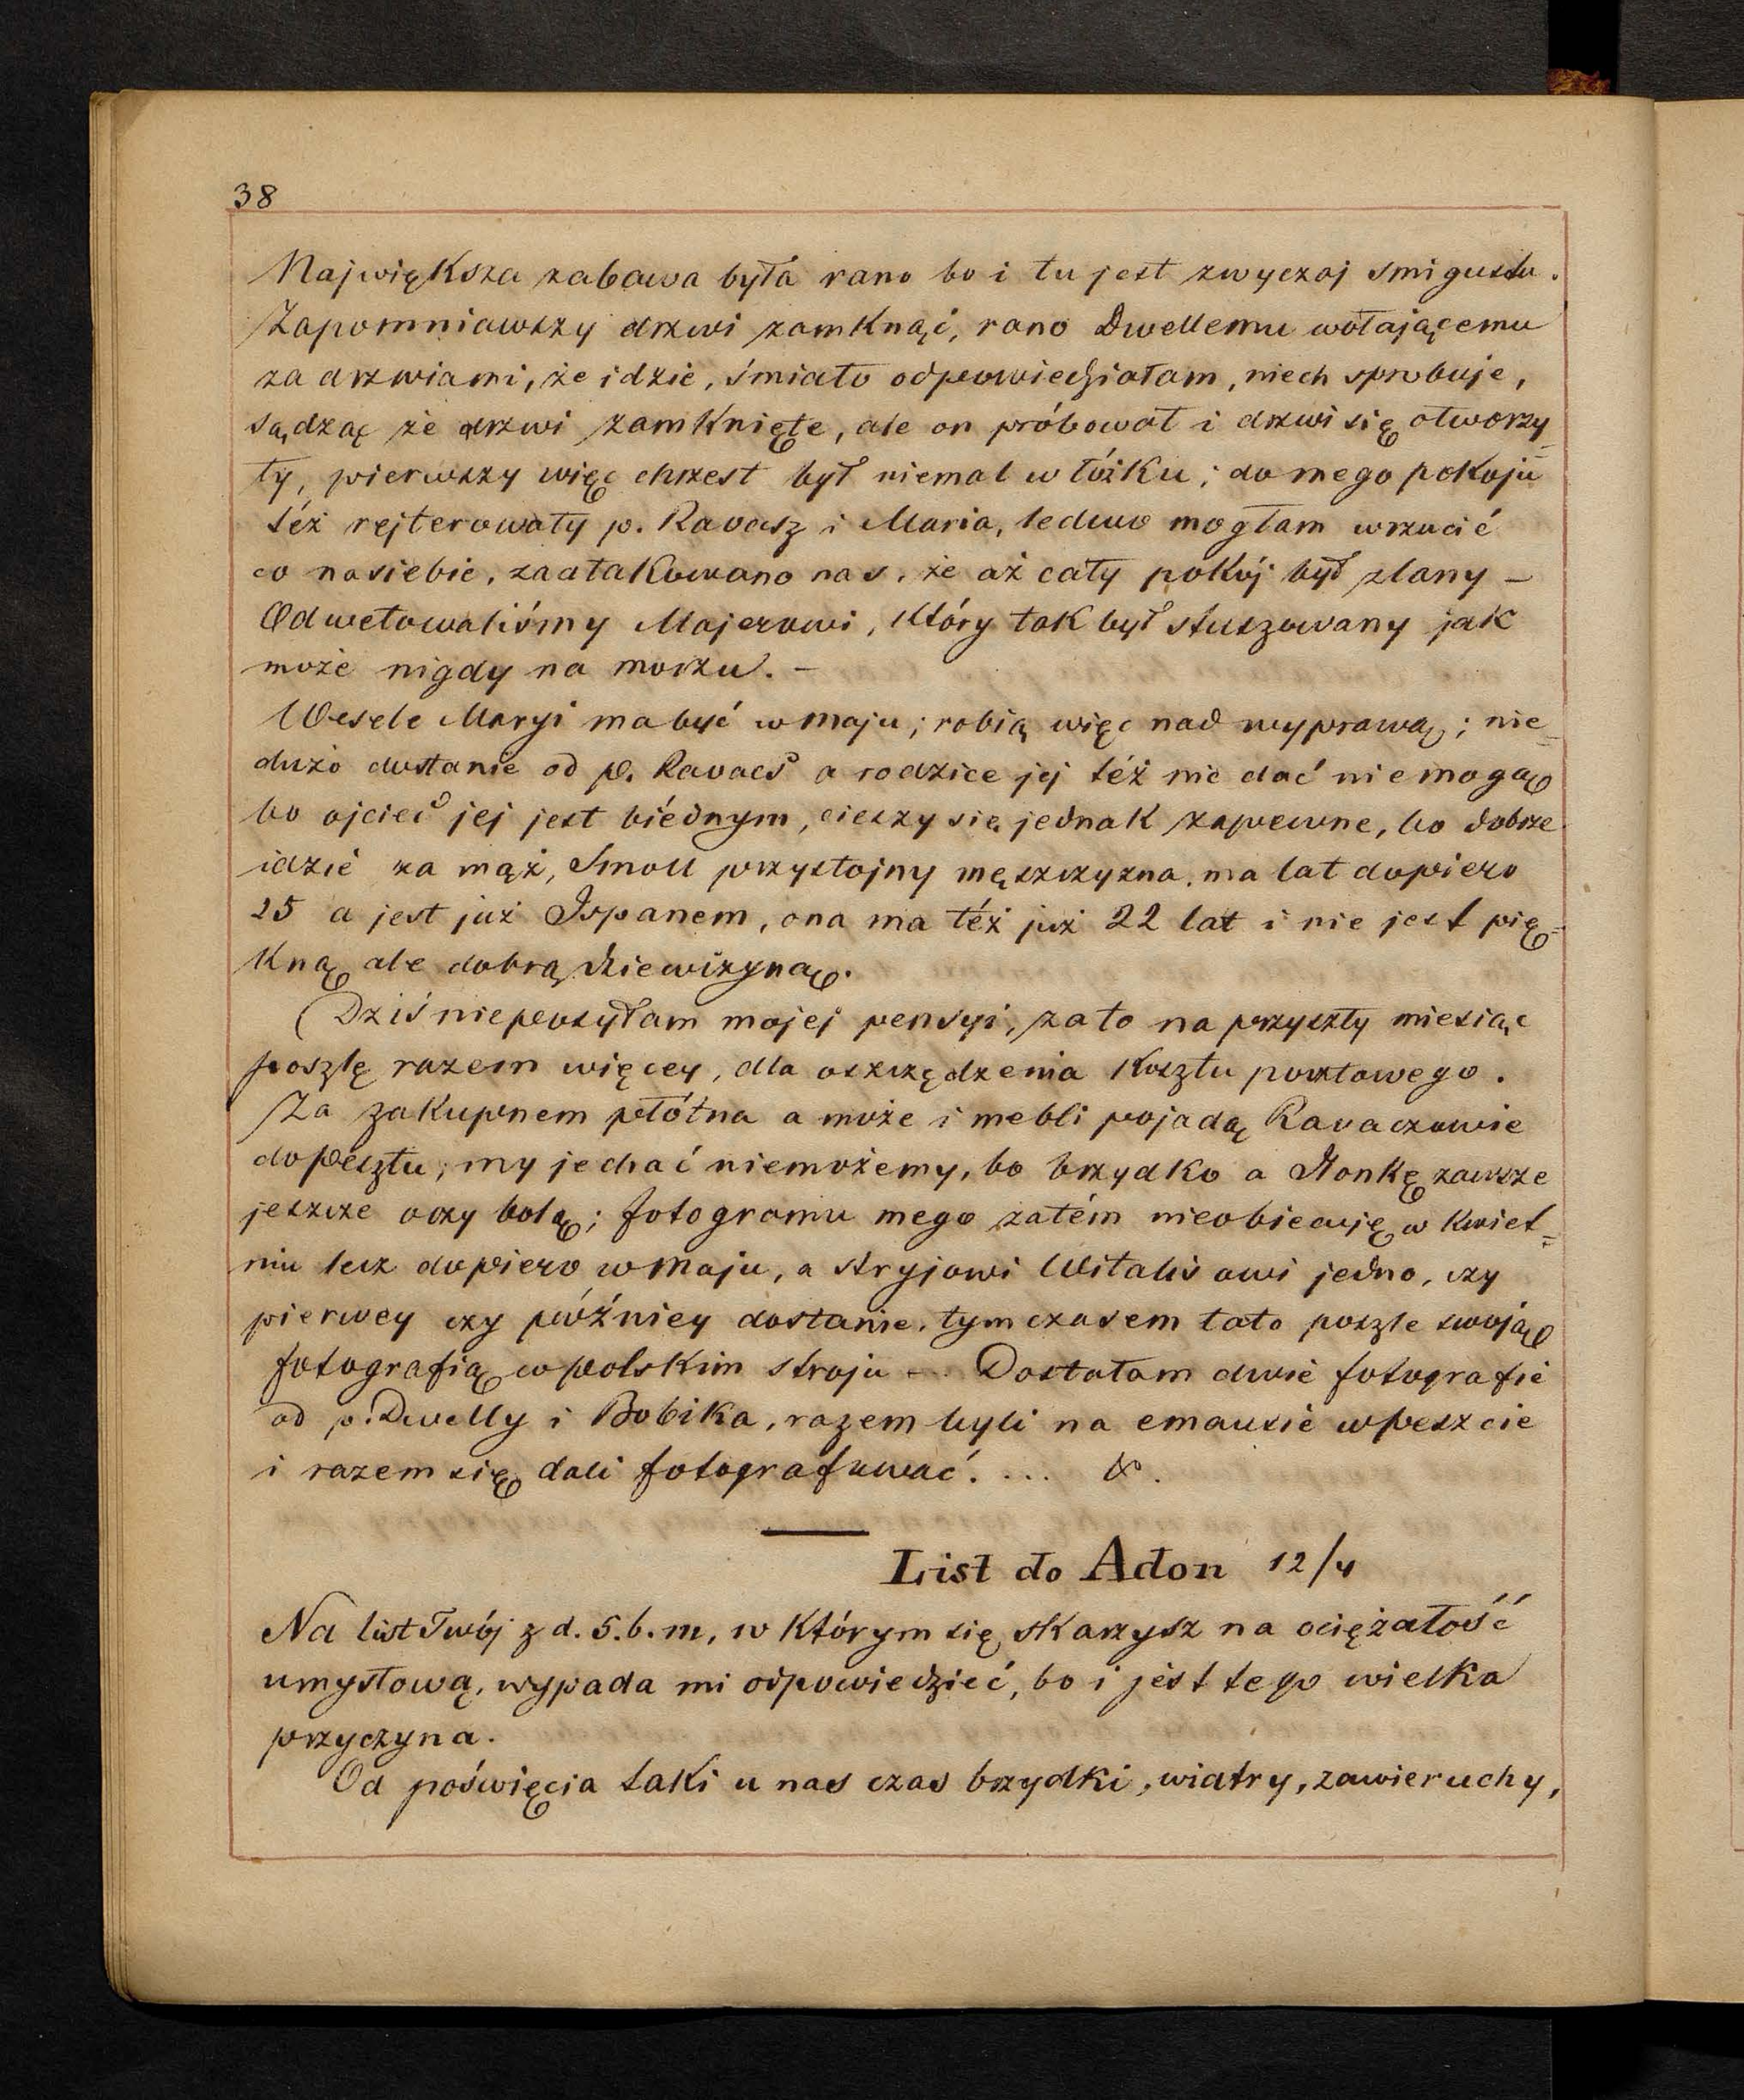 38
Największa zabawa była rano bo i tu jest zwyczaj smigustu.
Zapomniawszy drzwi zamknąć, rano Dwellemu wołającemu
za drzwiami, że idzie, śmiało odpowiedziałam, niech sprobuje,
sądząc że drzwi zamknięte, ale on próbował i drzwi się otworzy=
ły, pierwszy więc chrzest był niemal w łóżku; do mego pokoju
téż rejterowały p. Ravasz i Maria, ledwo mogłam wrzucić
co na siebie, zaatakowano nas, że aż cały pokój był zlany –
Odwetowaliśmy Majerowi, który tak był stuszowany jak
może nigdy na morzu. –
Wesele Maryi ma być w maju; robią więc nad wyprawą; nie=
dużo dostanie od p. Ravacs a rodzice jej téż nic dać niemogą
bo ojciec jej jest biédnym, cieszy się jednak zapewne, bo dobrze
idzie za mąż, Smoll przystojny męszczyzna, ma lat dopiero
25 a jest już Ispanem, ona ma téż już 22 lat i nie jest pię=
kną ale dobrą dziewczyną.
(Dziś nieposyłam mojej pensyi, za to na przyszły miesiąc
poszlę razem więcey, dla oszczędzenia kosztu pocztowego.
Za zakupnem płótna a może i mebli pojadą Ravaczowie
do Pesztu, my jechać niemożemy, bo brzydko a Ilonkę zawsze
jeszcze oczy bolą; fotogramu mego zatém nieobiecuję w kwiet=
niu lecz dopiero w maju, a stryjowi Witalisowi jedno, czy
pierwey czy późniey dostanie, tymczasem tato poszle swoją
fotografią w polskim stroju –. Dostałam dwie fotografie
od p. Dwelly i Bobika, razem byli na emausie w Peszcie
i razem się dali fotografować. ... &.
List do Adon 12/4
Na list Twój z d. 5. b. m, w którym się skarzysz na ociężałość
umysłową, wypada mi odpowiedzieć, bo i jest tego wielka
przyczyna.
Od poświęcia taki u nas czas brzydki, wiatry, zawieruchy,